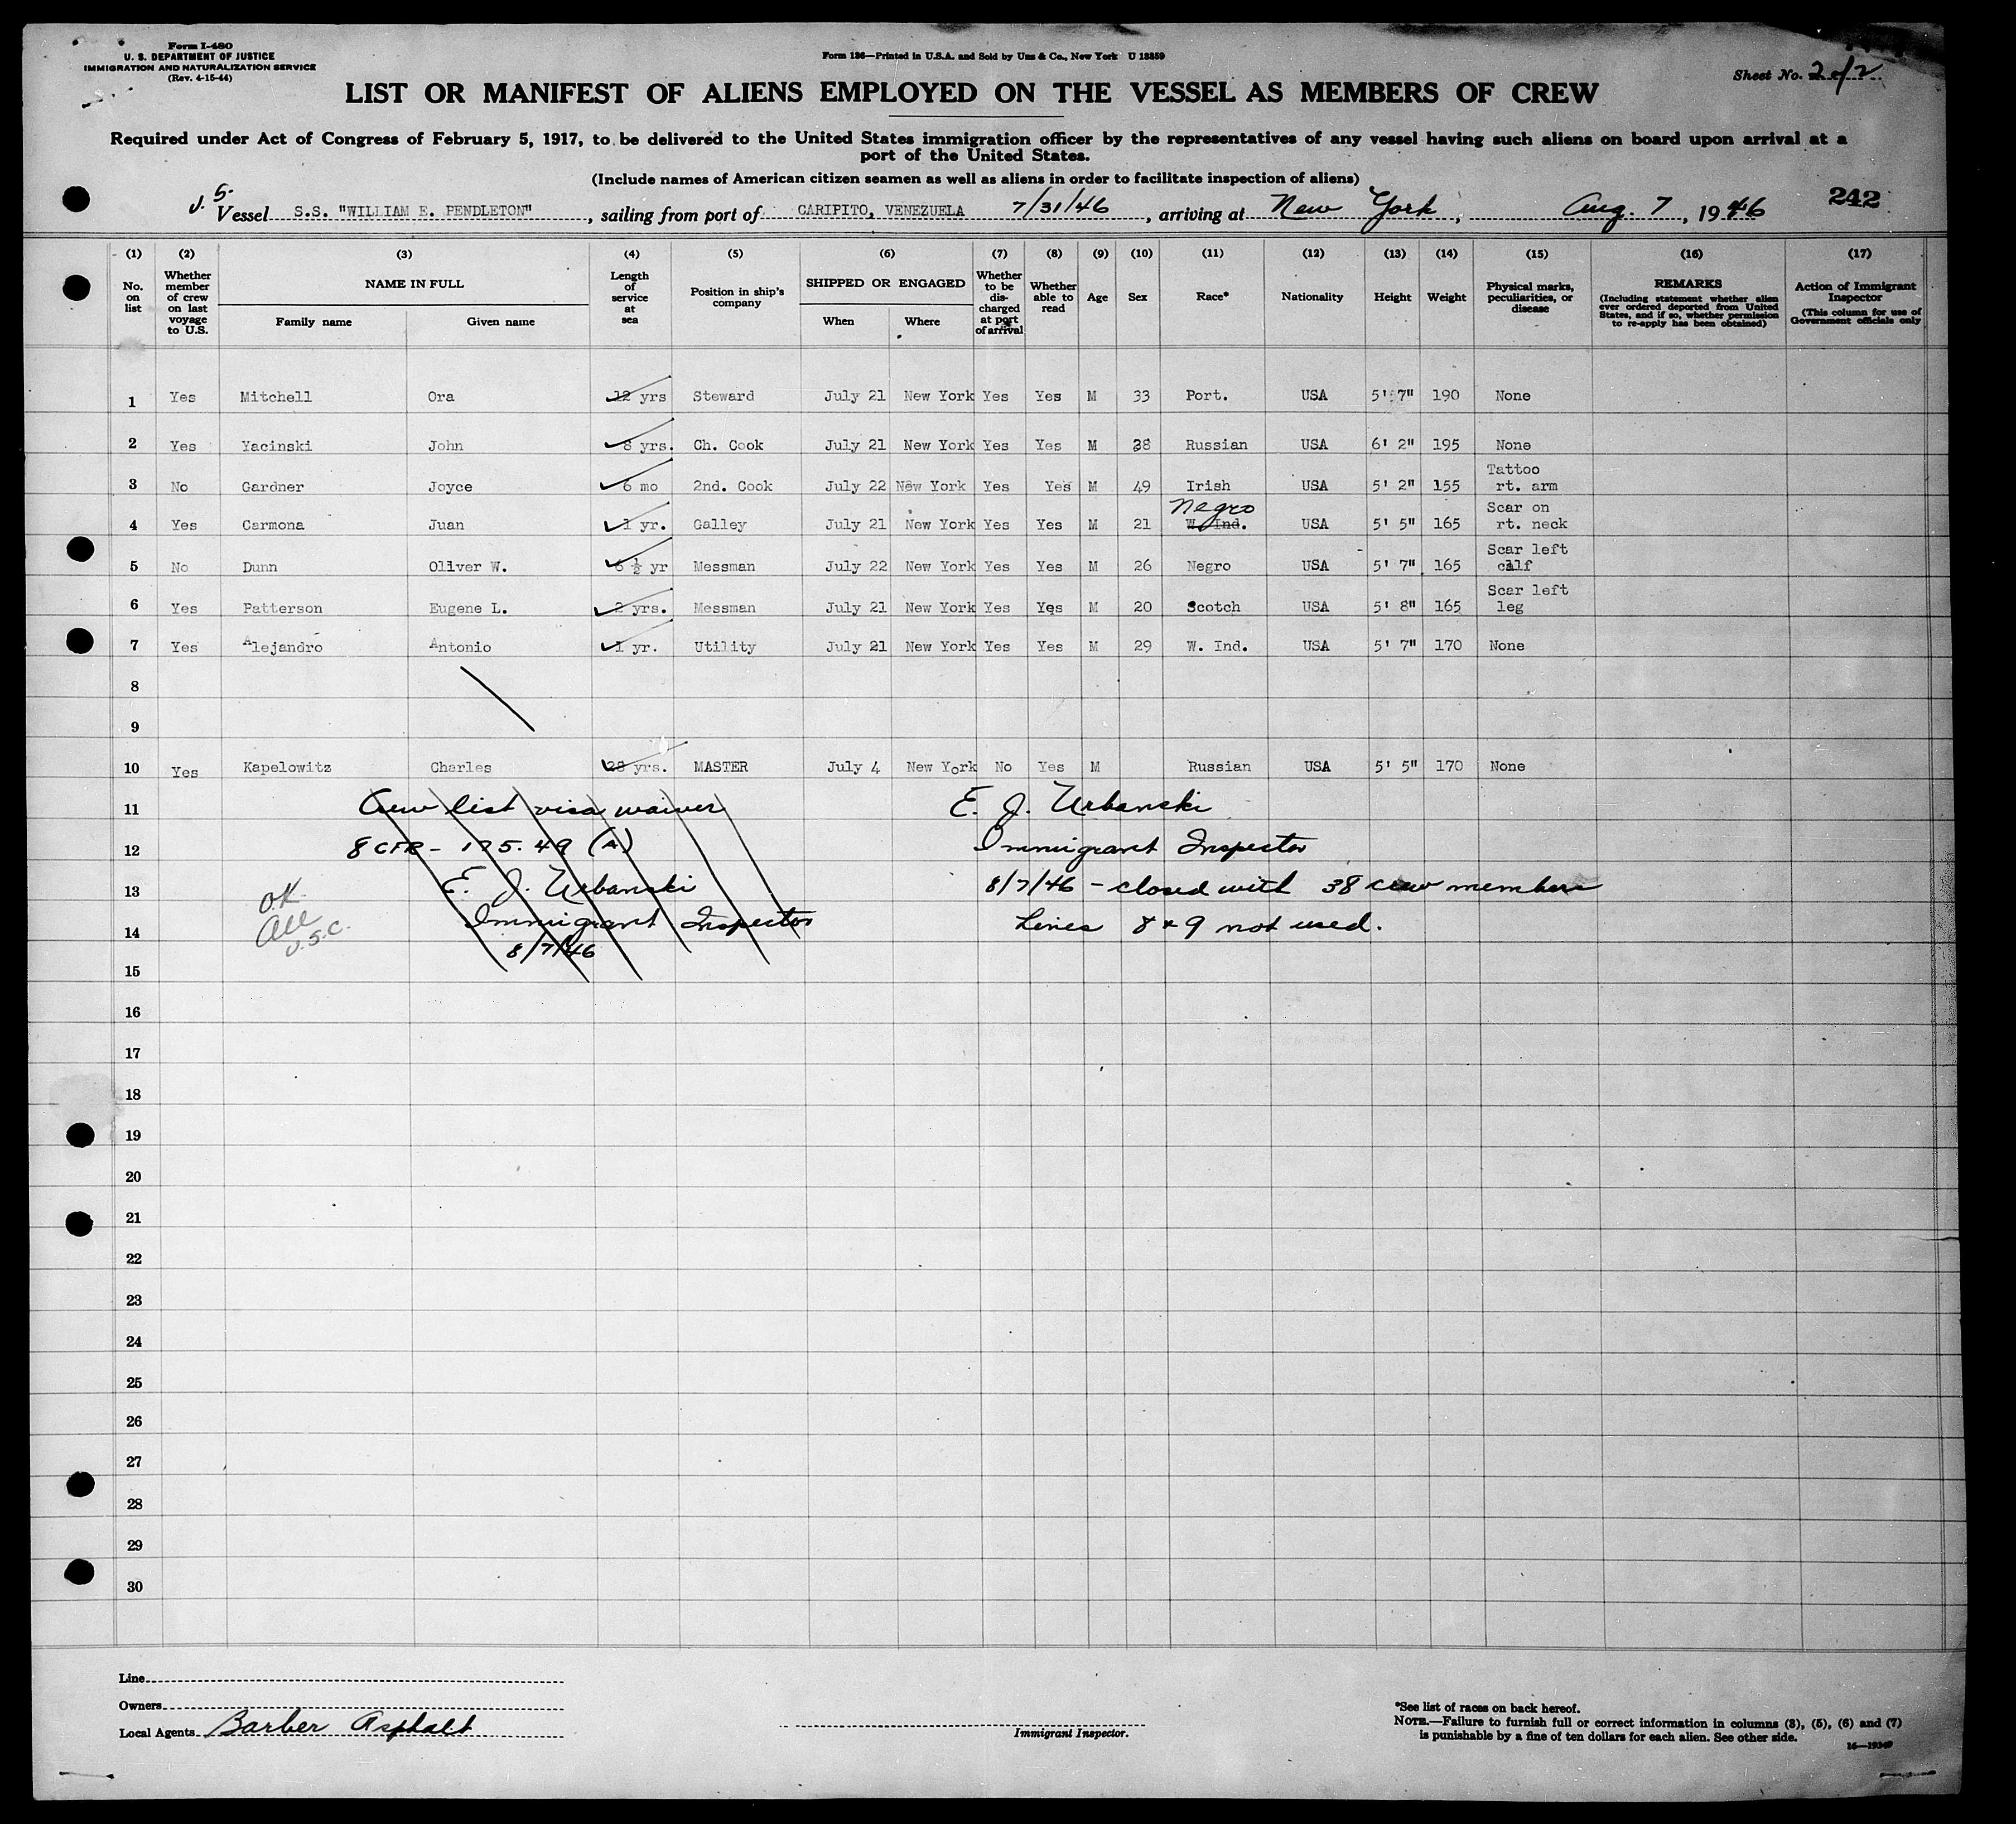 Form I-480
U. S. DEPARTMENT OF JUSTICE
IMMIGRATION AND NATURALIZATION SERVICE
(Rev. 4-15-44)
Form 136—Printed in U.S.A. and Sold by Unz & Co., New York U 13359
Sheet No. 2 of 2
LIST OR MANIFEST OF ALIENS EMPLOYED ON THE VESSEL AS MEMBERS OF CREW
Required under Act of Congress of February 5, 1917, to be delivered to the United States immigration officer by the representatives of any vessel having such aliens on board upon arrival at a
port of the United States.
(Include names of American citizen seamen as well as aliens in order to facilitate inspection of aliens)
U.S. Vessel S.S. "WILLIAM E. PENDLETON", sailing from port of CARIPITO, VENEZUELA 7/31/46, arriving at New York, Aug. 7, 1946 242
(1) (2) (3) (4) (5) (6) (7) (8) (9) (10) (11) (12) (13) (14) (15) (16) (17)
No. on list
Whether member of crew on last voyage to U.S.
NAME IN FULL
Family name Given name
Length of service at sea
Position in ship's company
SHIPPED OR ENGAGED
When Where
Whether to be discharged at port of arrival
Whether able to read
Age
Sex
Race*
Nationality
Height
Weight
Physical marks, peculiarities, or disease
REMARKS
(Including statement whether alien ever ordered deported from United States, and if so, whether permission to re-apply has been obtained)
Action of Immigrant Inspector
(This column for use of Government officials only
1 Yes Mitchell Ora 12 yrs Steward July 21 New York Yes Yes M 33 Port. USA 5' 7" 190 None
2 Yes Yacinski John 8 yrs. Ch. Cook July 21 New York Yes Yes M 38 Russian USA 6' 2" 195 None
3 No Gardner Joyce 6 mo 2nd. Cook July 22 New York Yes Yes M 49 Irish USA 5' 2" 155 Tattoo rt. arm
4 Yes Carmona Juan 1 yr. Galley July 21 New York Yes Yes M 21 W. Ind. Negro USA 5' 5" 165 Scar on rt. neck
5 No Dunn Oliver W. 6 ½ yr Messman July 22 New York Yes Yes M 26 Negro USA 5' 7" 165 Scar left calf
6 Yes Patterson Eugene L. 2 yrs. Messman July 21 New York Yes Yes M 20 Scotch USA 5' 8" 165 Scar left leg
7 Yes Alejandro Antonio 1 yr. Utility July 21 New York Yes Yes M 29 W. Ind. USA 5' 7" 170 None
8
9
10 Yes Kapelowitz Charles 28 yrs. MASTER July 4 New York No Yes M Russian USA 5' 5" 170 None
11 Crew list visa waiver E. J. Urbanski
12 8 CFR - 175.49 (A) Immigrant Inspector
13 E. J. Urbanski 8/7/46 - closed with 38 crew members
O.K. All U.S.C.
14 Immigrant Inspector Lines 8 & 9 not used.
8/7/46
15
16
17
18
19
20
21
22
23
24
25
26
27
28
29
30
Line
Owners
Local Agents Barber Asphalt
Immigrant Inspector.
*See list of races on back hereof.
NOTE.—Failure to furnish full or correct information in columns (3), (5), (6) and (7)
is punishable by a fine of ten dollars for each alien. See other side.
16—19340